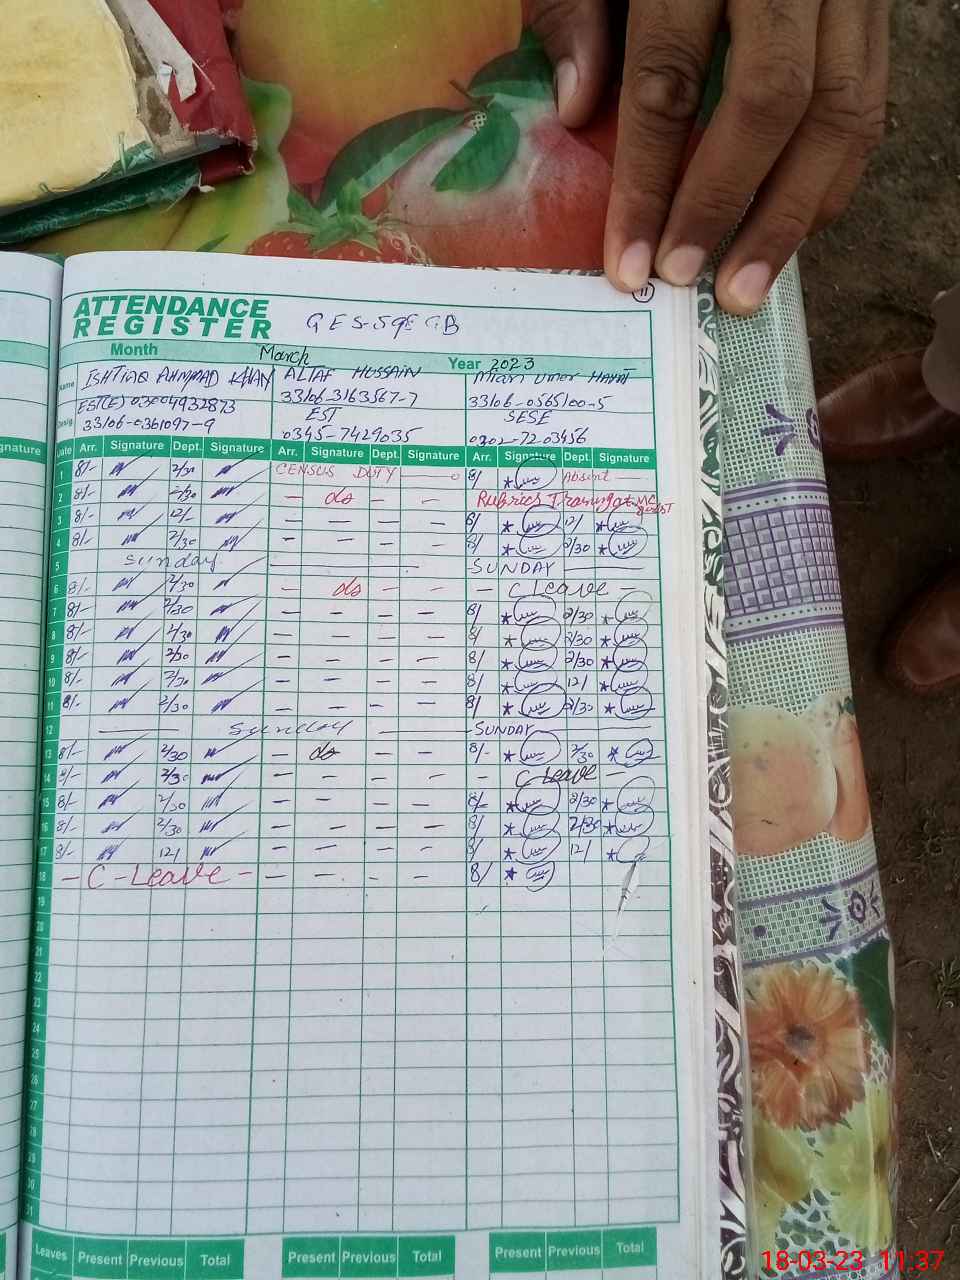 11
ATTENDANCE
REGISTER
Month March Year 2023
Name ISHTIAQ AHMAD KHAN ALTAF HUSSAIN Mian Umer HAYAT
EST(E) 03004932873 33106-3163567-7 33106-0565100-5
Desig. 33106-0361097-9 EST SESE
0345-7429035 0302-7203456
gnature Date Arr. Signature Dept. Signature Arr. Signature Dept. Signature Arr. Signature Dept. Signature
1 8/- 2/30 CENSUS DUTY 8/ Absent
2 8/- 2/30 — do — — Rubrics Training at
3 8/- 12/- — — — — 8/ 12/
4 8/- 2/30 — — — — 8/ 2/30
5 Sunday SUNDAY
6 8/- 2/30 — do — — — C Leave —
7 8/- 2/30 — — — — 8/ 2/30
8 8/- 2/30 — — — — 8/ 2/30
9 8/- 2/30 — — — — 8/ 2/30
10 8/- 2/30 — — — — 8/ 12/
11 8/- 2/30 — — — — 8/ 2/30
12 Sunday SUNDAY
13 8/- 2/30 — do — — 8/- 2/30
14 8/- 2/30 — — — — — C Leave —
15 8/- 2/30 — — — — 8/- 2/30
16 8/- 2/30 — — — — 8/ 2/30
17 8/- 12/ — — — — 8/ 12/
18 — C - Leave — — — — — 8/
19
20
21
22
23
24
25
26
27
28
29
30
31
Leaves Present Previous Total Present Previous Total Present Previous Total
18-03-23 11:37